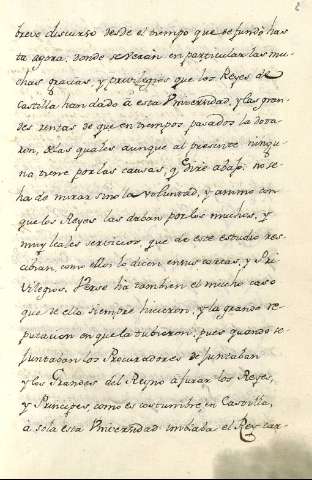 2
breve discurso desde el tiempo que se fundó has
ta agora: donde se veran en particular las mu
chas gracias, y privilegios que los Reyes de
Castilla han dado à esta Vniversidad, y las gran
des rentas de que en tiempos pasados la dota
ron, de las quales aunque al presente ningu
na tiene por las causas, q̃ dire abajo: no se
ha de mirar sino la voluntad, y animo con
que los Reyes las daban por los muchos, y
muy leales servicios, que de este estudio res
cibian, como ellos lo dicen en sus cartas, y Pri
vilegios. Verse ha tambien el mucho caso
que de ella siempre hicieron, y la grande re
putacion en que la tubieron, pues quando se
juntaban los Procuradores de
y los Grandes del Reyno à jurar los Reyes,
y Principes, como es costumbre en Castilla,
à sola esta Vniversidad imbiaba el Rey car-